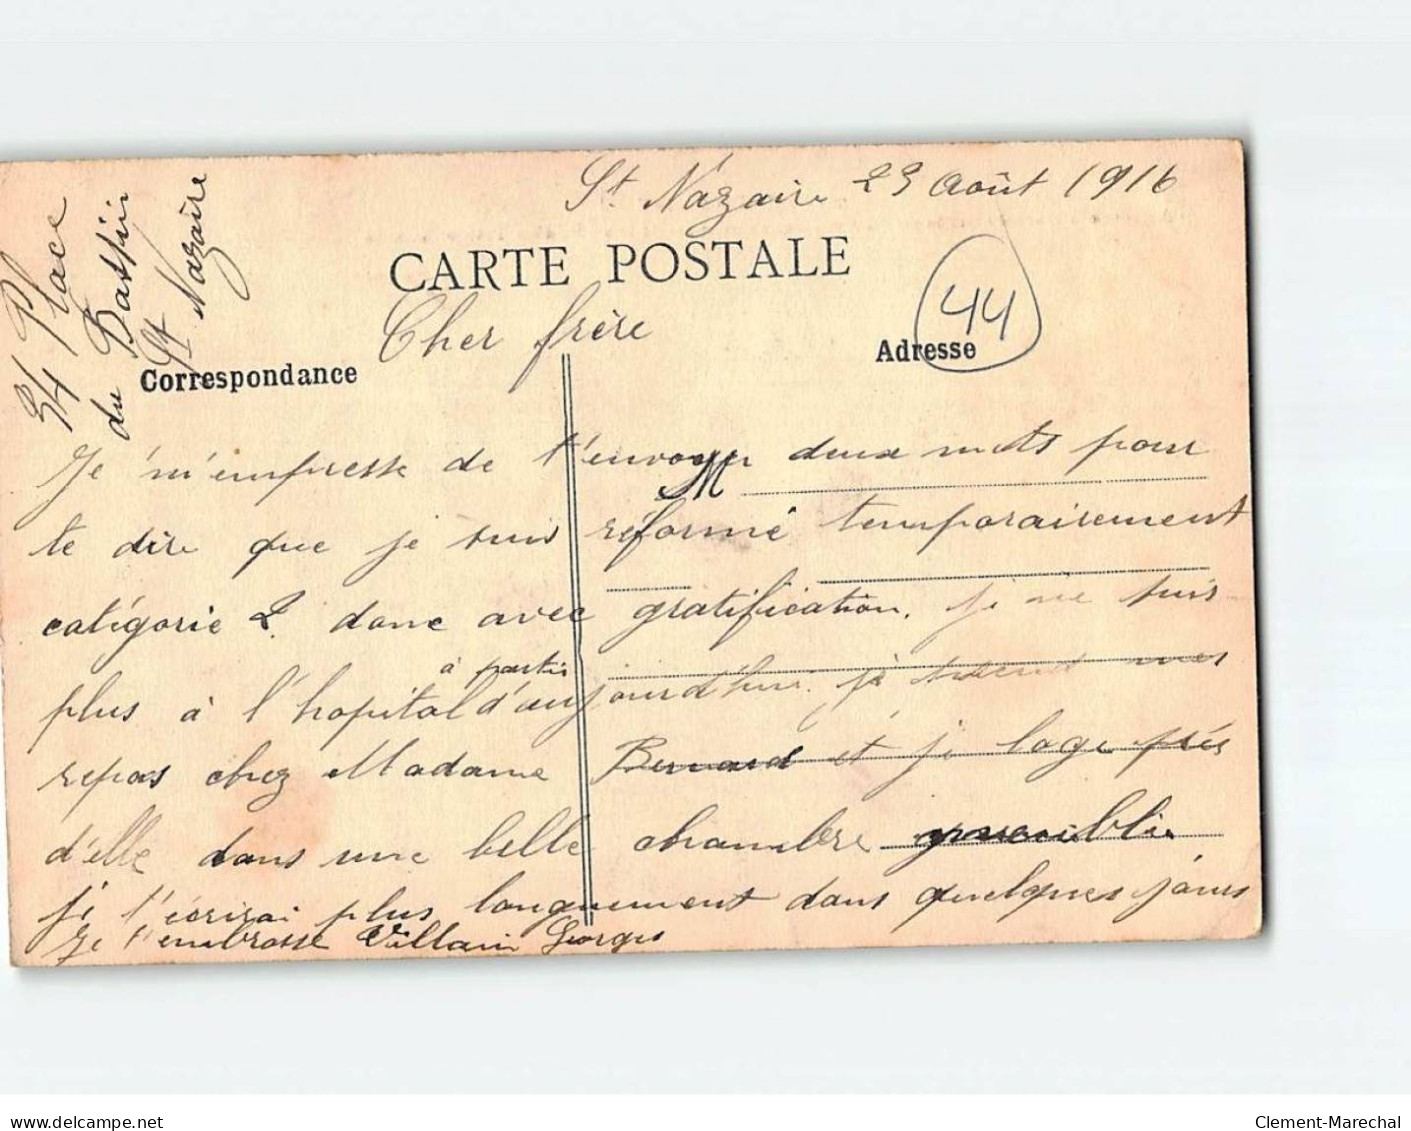 St Nazaire 23 Août 1916
34 Place
du Bassin
St Nazaire
CARTE POSTALE
Cher frère
44
Correspondance
Adresse
Je m'empresse de t'envoyer deux mots pour
M
te dire que je suis réformé temporairement
catégorie 2. donc avec gratification. je ne suis
à partir
plus à l'hopital d'aujourd'hui. je prend mes
repas chez Madame Bernard et je loge près
d'elle dans une belle chambre
je t'écrirai plus longuement dans quelques jours
Je t'embrasse Villain Georges
Clement-Marechal
www.delcampe.net